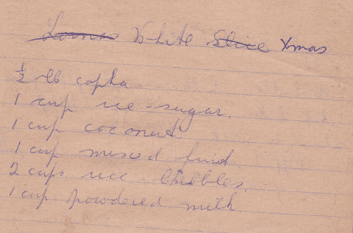 White Slice Xmas
½ lb copha
1 cup ice-sugar.
1 cup coconut
1 cup mixed fruit
2 cups rice bubbles.
1 cup powdered milk